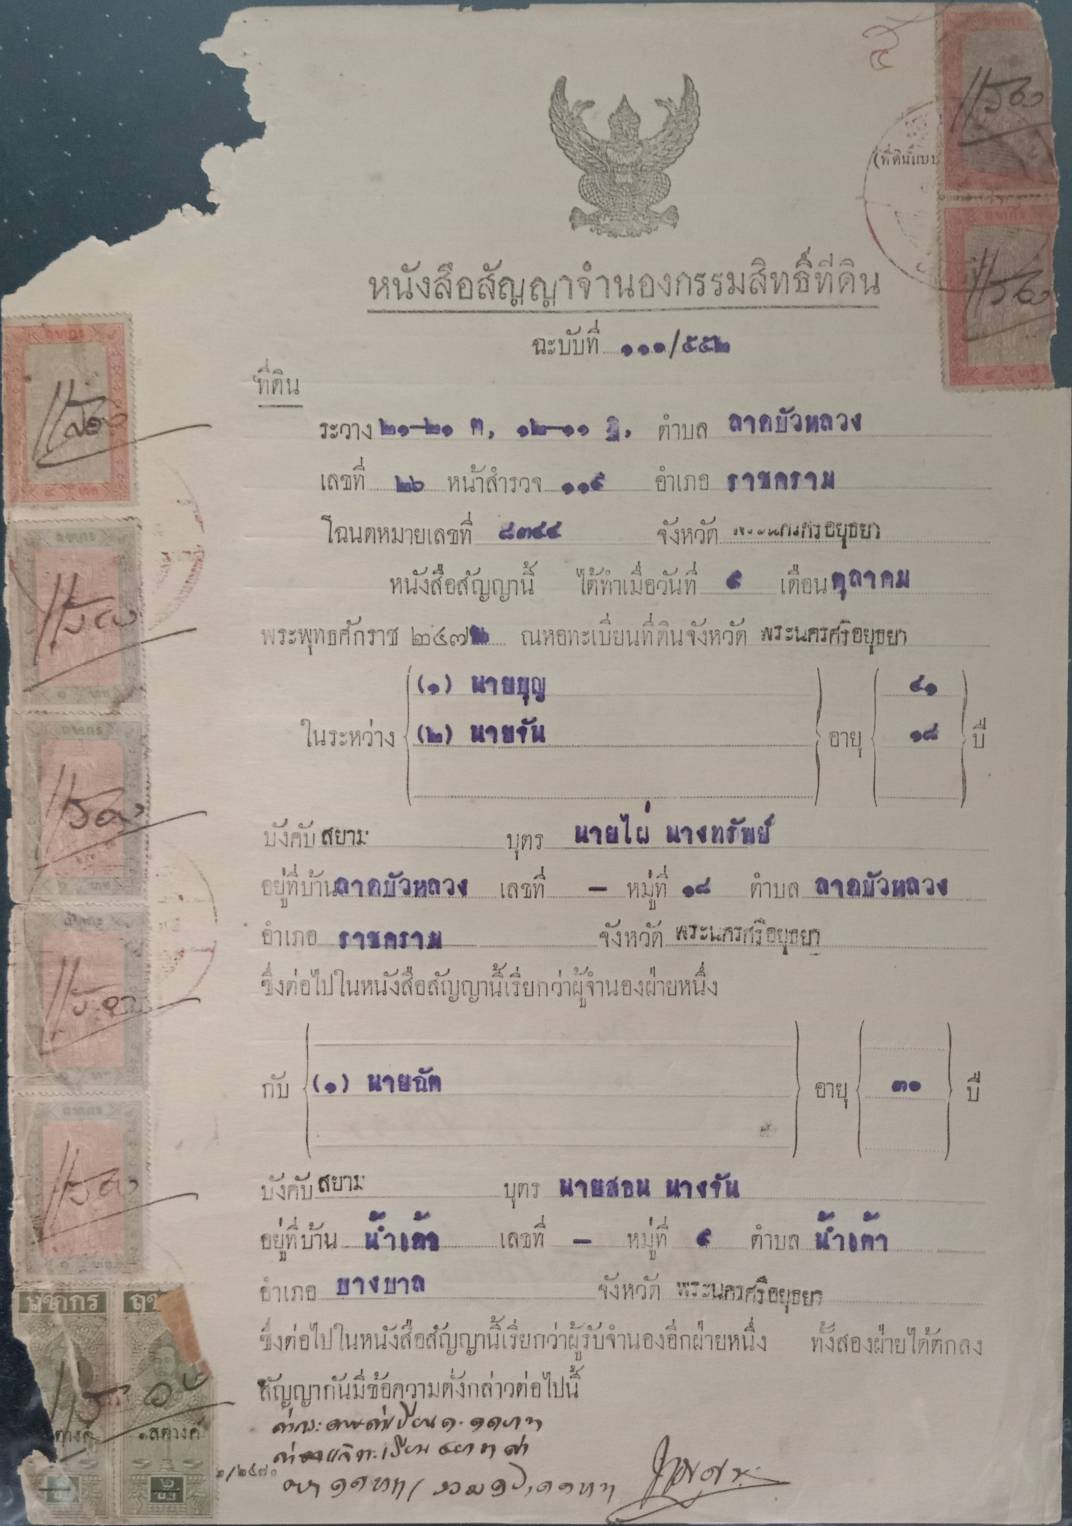 (ที่ดินแบบ
หนังสือสัญญาจำนองกรรมสิทธิ์ที่ดิน
ฉะบับที่ ๑๑๑/๕๕๒
ที่ดิน
ระวาง ๒๑-๒๑ ฅ, ๑๒-๑๑ ฎ, ตำบล ลาดบัวหลวง
เลขที่ ๒๖ หน้าสำรวจ ๑๑๙ อำเภอ ราชคราม
โฉนดหมายเลขที่ ๘๓๔๔ จังหวัด พระนครศรีอยุธยา
หนังสือสัญญานี้ ได้ทำเมื่อวันที่ ๙ เดือน ตุลาคม
พระพุทธศักราช ๒๔๗๒ ณหอทะเบียนที่ดินจังหวัด พระนครศรีอยุธยา
(๑) นายบุญ ๔๑
ในระหว่าง (๒) นายจัน อายุ ๑๘ ปี
บังคับ สยาม บุตร นายไผ่ นางทรัพย์
อยู่ที่บ้าน ลาดบัวหลวง เลขที่ - หมู่ที่ ๑๘ ตำบล ลาดบัวหลวง
อำเภอ ราชคราม จังหวัด พระนครศรีอยุธยา
ซึ่งต่อไปในหนังสือสัญญานี้เรียกว่าผู้จำนองฝ่ายหนึ่ง
กับ (๑) นายฉัต อายุ ๓๐ ปี
บังคับ สยาม บุตร นายสอน นางจัน
อยู่ที่บ้าน น้ำเต้า เลขที่ - หมู่ที่ ๙ ตำบล น้ำเต้า
อำเภอ บางบาล จังหวัด พระนครศรีอยุธยา
ซึ่งต่อไปในหนังสือสัญญานี้เรียกว่าผู้รับจำนองอีกฝ่ายหนึ่ง ทั้งสองฝ่ายได้ตกลง
สัญญากันมีข้อความดั่งกล่าวต่อไปนี้
อากร
สตางค์
๒